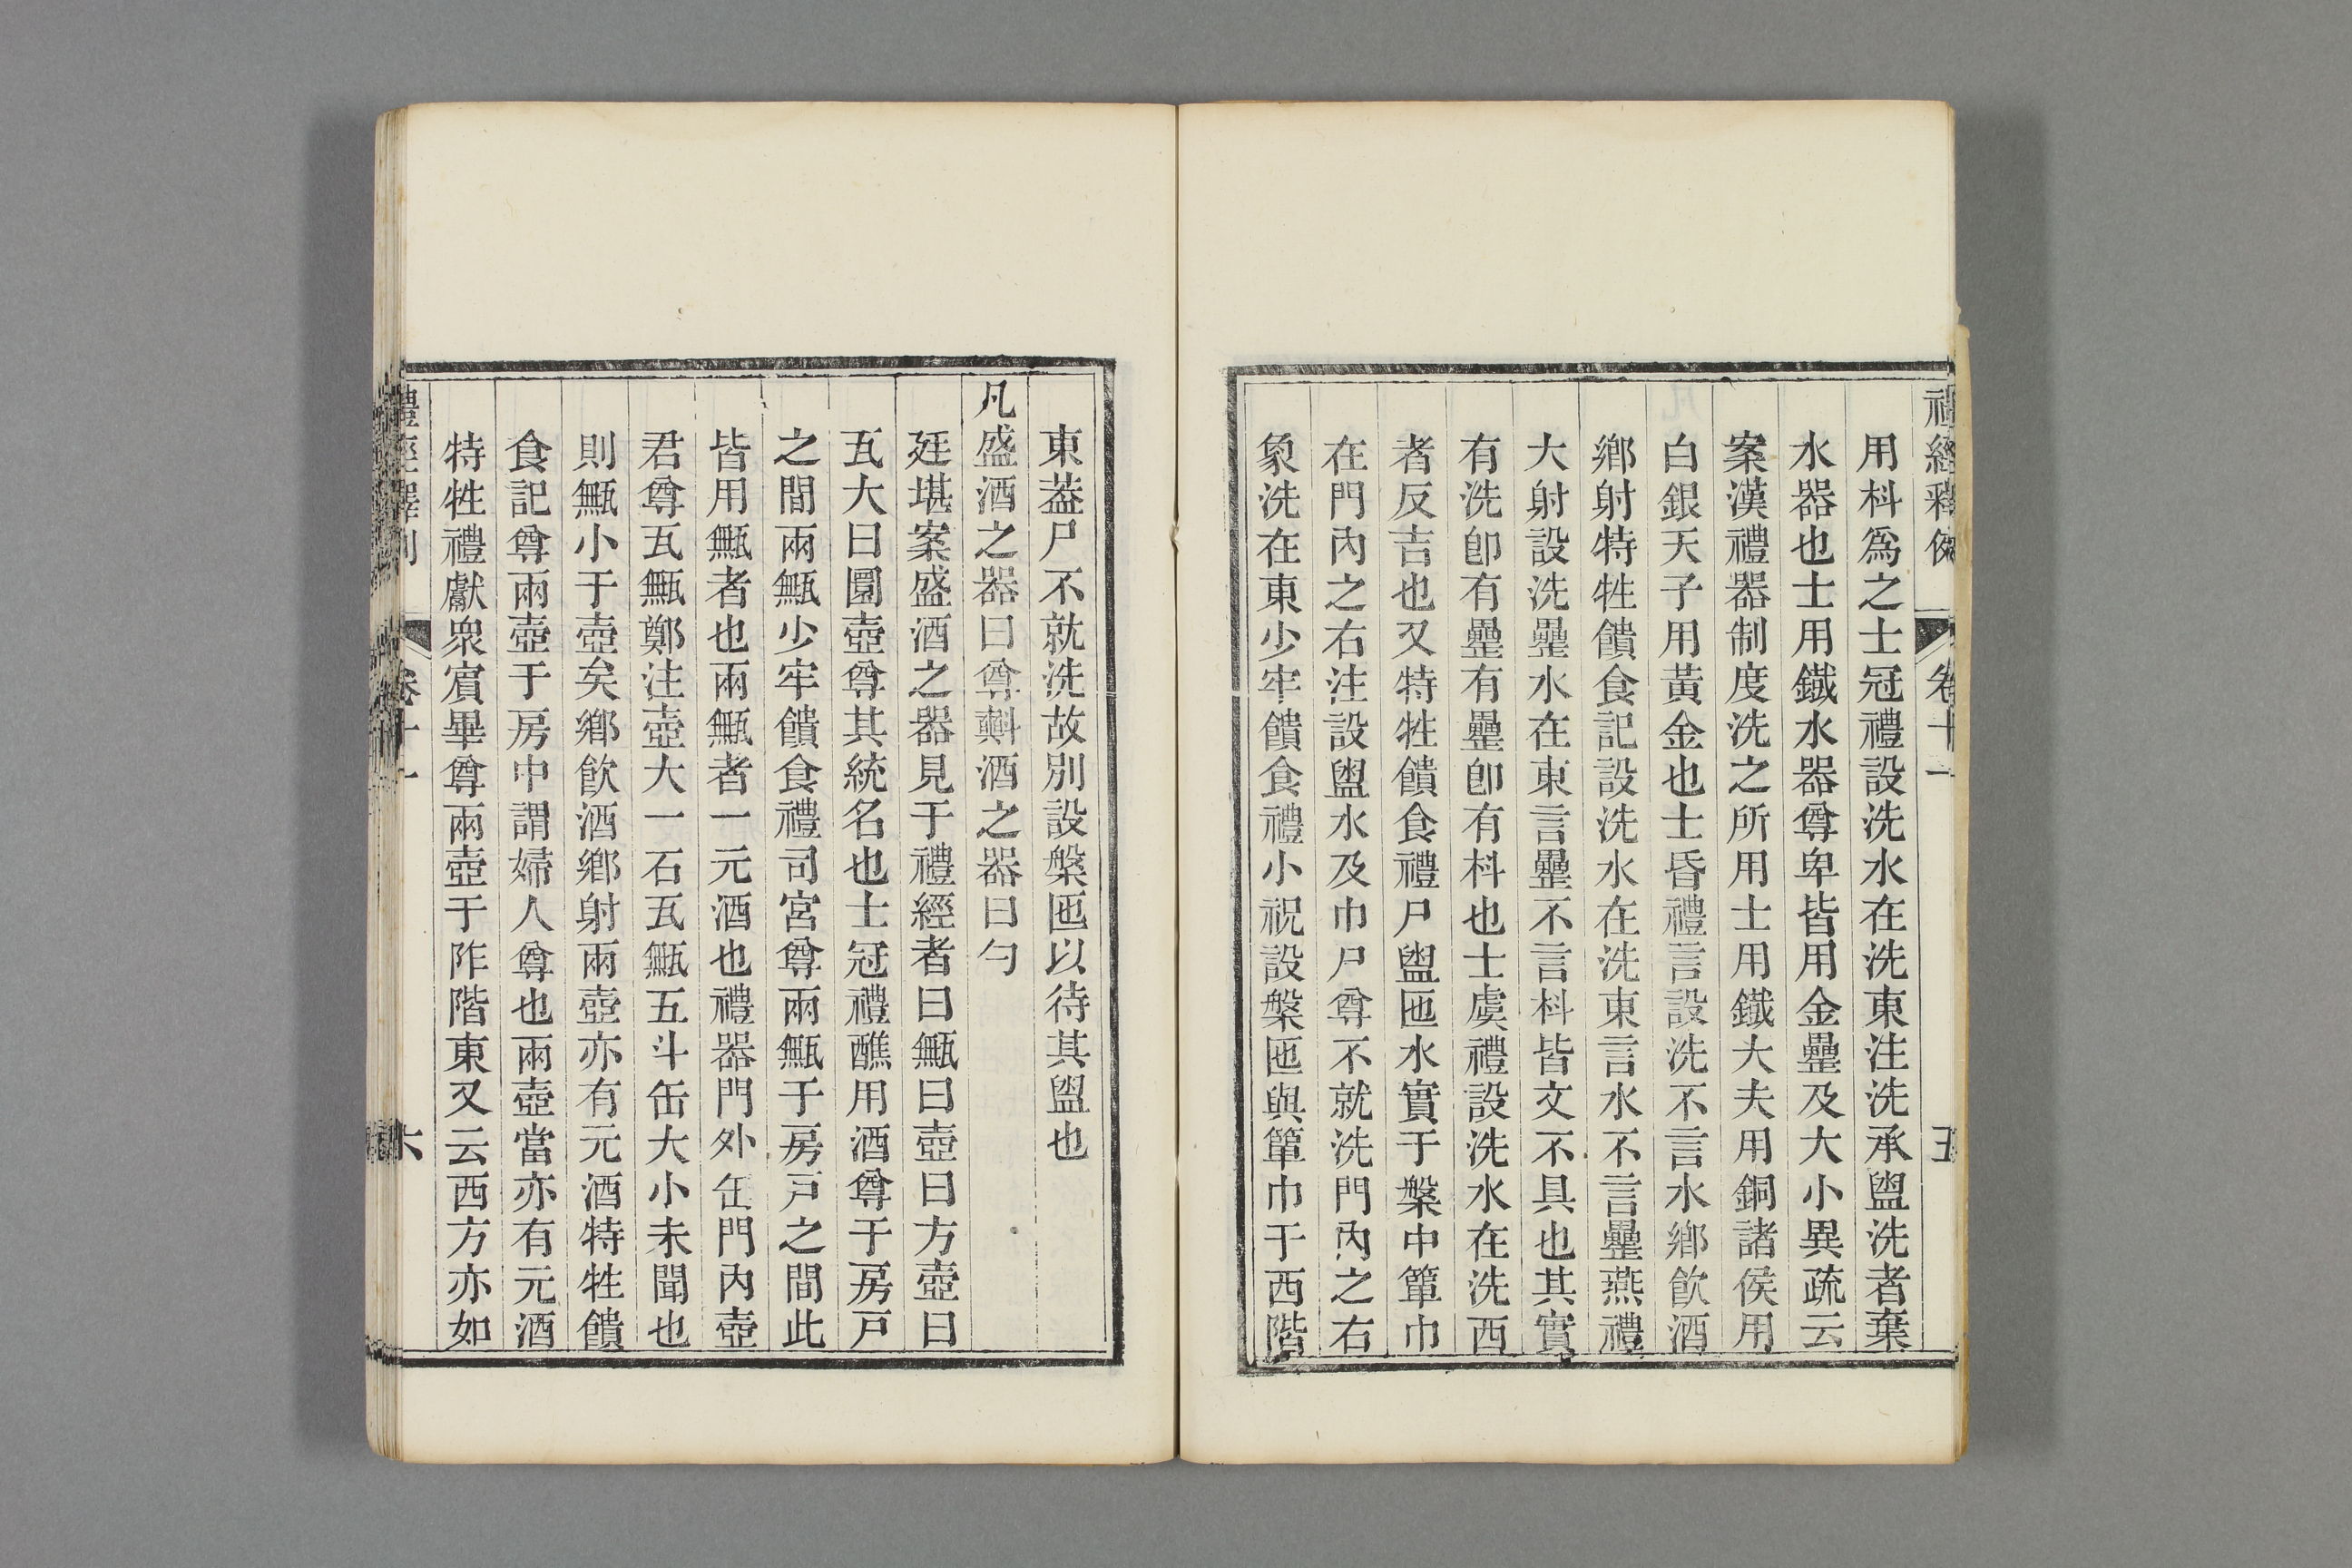 禮經釋例 卷十一 五
用枓爲之士冠禮設洗水在洗東注洗承盥洗者棄
水器也士用鐵水器尊卑皆用金罍及大小異疏云
案漢禮器制度洗之所用士用鐵大夫用銅諸侯用
白銀天子用黃金也士昏禮言設洗不言水鄉飲酒
鄉射特牲饋食記設洗水在洗東言水不言罍燕禮
大射設洗罍水在東言罍不言枓皆文不具也其實
有洗卽有罍有罍卽有枓也士虞禮設洗水在洗西
者反吉也又特牲饋食禮尸盥匜水實于槃中簞巾
在門內之右注設盥水及巾尸尊不就洗門內之右
象洗在東少牢饋食禮小祝設槃匜與簞巾于西階
東葢尸不就洗故別設槃匜以待其盥也
凡盛酒之器曰尊㪺酒之器曰勺
廷堪案盛酒之器見于禮經者曰甒曰壺曰方壺曰
瓦大曰圜壺尊其統名也士冠禮醮用酒尊于房戸
之間兩甒少牢饋食禮司宮尊兩甒于房戸之間此
皆用甒者也兩甒者一元酒也禮器門外缶門內壺
君尊瓦甒鄭注壺大一石瓦甒五斗缶大小未聞也
則甒小于壺矣鄉飲酒鄉射兩壺亦有元酒特牲饋
食記尊兩壺于房中謂婦人尊也兩壺當亦有元酒
特牲禮獻衆賓畢尊兩壺于阼階東又云西方亦如
禮經釋例 卷十一 六